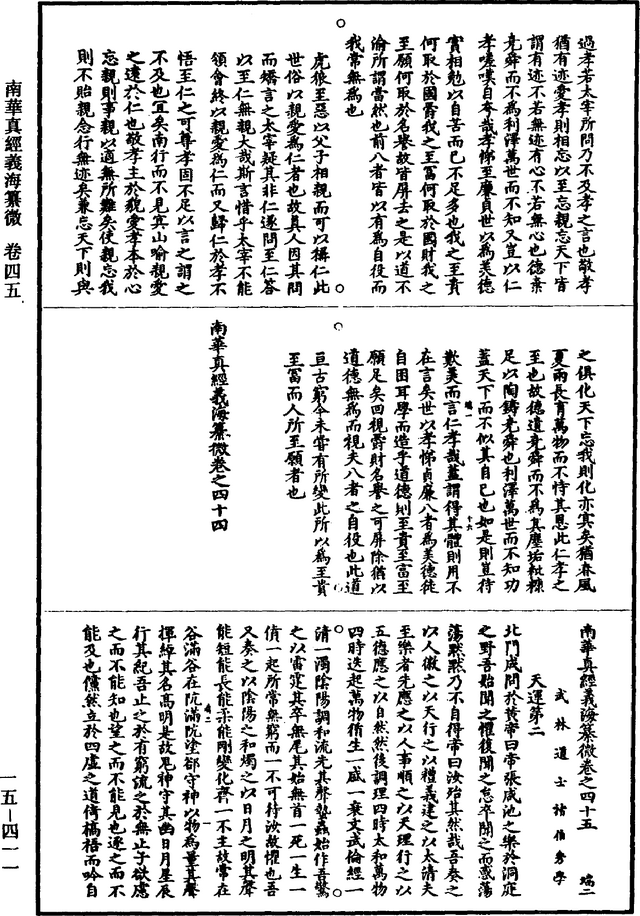 過孝若太宰所問乃不及孝之言也敬孝
猶有迹愛孝則相忘以至忘親忘天下皆
謂有迹不若無迹有心不若無心也德棄
堯舜而不為利澤萬世而不知又豈以仁
孝嗟嘆自夸哉孝悌至廉貞世以為美德
實相勉以自苦而已不足多也我之至貴
何取於國爵我之至富何取於國財我之
至願何取於名譽故皆屏去之是以道不
渝所謂當然也前八者皆以有為自役而
我常無為也
虎狼至惡以父子相親而可以稱仁此
世俗以親愛為仁者也故真人因其問
而矯言之太宰疑其非仁遂問至仁答
以至仁無親大哉斯言惜乎太宰不能
領會終以親愛為仁而又歸仁於孝不
悟至仁之可尊孝固不足以言之謂之
不及也宜矣南行而不見冥山喻親愛
之遠於仁也敬孝主於貌愛孝本於心
忘親則事親以適無所難矣使親忘我
則不貽親念行無迹矣兼忘天下則與
南華真經義海纂微 卷四五
之俱化天下忘我則化亦冥矣猶春風
夏雨長育萬物而不恃其恩此仁孝之
至也故德遺堯舜而不為真塵垢粃糠
足以陶鑄堯舜也利澤萬世而不知功
蓋天下而不似其自己也如是則豈待
歎羨而言仁孝哉蓋謂得其體則用不
在言矣世以孝悌貞廉八者為美德徒
自困耳學而造乎道德則至貴至富至
願足矣回視爵財名譽之可屏除猶以
道德無為而視夫八者之自役也此道
亘古窮今未嘗有所變此所以為至貴
至富而人所至願者也
南華真經義海纂微卷之四十四
南華真經義海纂微卷之四十五 端二
武林道士褚伯秀學
天運第二
北門成問於黃帝曰帝張咸池之樂於洞庭
之野吾始聞之懼復聞之怠卒聞之而惑蕩
蕩默默乃不自得帝曰汝殆其然哉吾奏之
以人徽之以天行之以禮義建之以太清夫
至樂者先應之以人事順之以天理行之以
五德應之以自然然後調理四時太和萬物
四時迭起萬物循生一盛一衰文武倫經一
清一濁陰陽調和流光其聲蟄蟲始作吾驚
之以雷霆其卒無尾其始無首一死一生一
僨一起所常無窮而一不可待汝故懼也吾
又奏之以陰陽之和燭之以日月之明其聲
能短能長能柔能剛變化齊一不主故常在
谷滿谷在阬滿阬塗郤守神以物為量其聲
揮綽其名高明是故鬼神守其幽日月星辰
行其紀吾止之於有窮流之於無止子欲慮
之而不能知也望之而不能見也逐之而不
能及也儻然立於四虛之道倚槁梧而吟自
一五—四一一